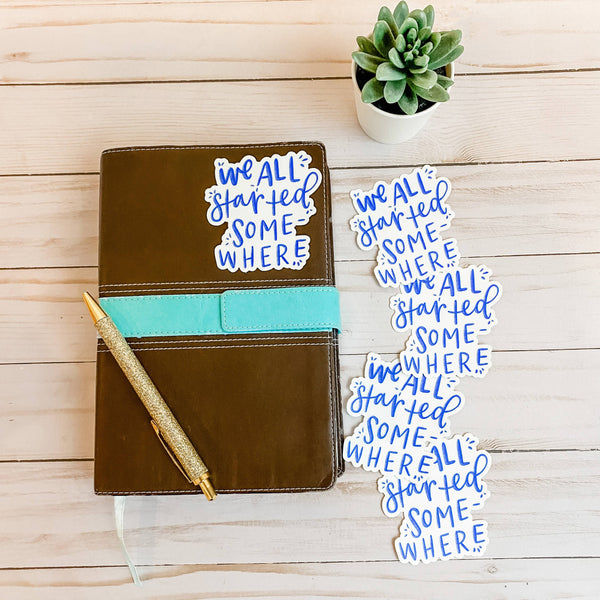 we ALL
started
SOME-
WHERE
we ALL
started
SOME-
WHERE
we ALL
started
SOME-
WHERE
we ALL
started
SOME
WHERE
ALL
started
SOME-
WHERE